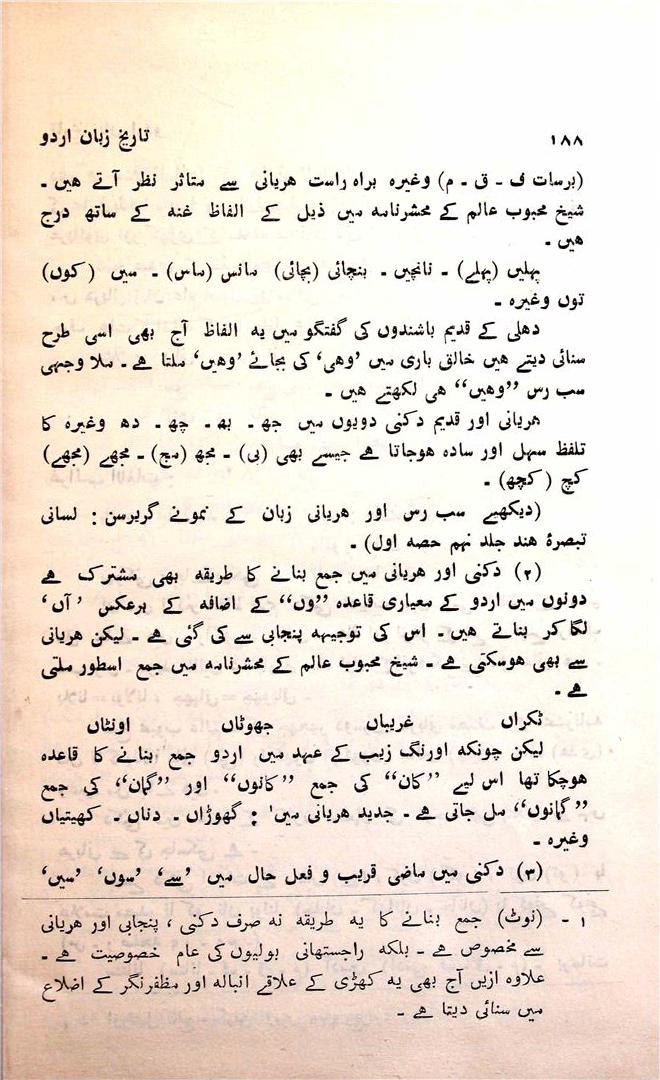 ۱۸۸ تاریخ زبان اردو
(برسات ف - ق - م) وغیرہ براہ راست ہریانی سے متاثر نظر آتے ہیں -
شیخ محبوب عالم کے محشرنامہ میں ذیل کے الفاظ غنہ کے ساتھ درج
ہیں -
پہلیں (پہلے) - نانچیں - بنچائی (بچائی) مانس (ماس) - میں (کوں)
توں وغیرہ -
دہلی کے قدیم باشندوں کی گفتگو میں یہ الفاظ آج بھی اسی طرح
سنائی دیتے ہیں خالق باری میں ’وہی‘ کی بجائے ’وہیں‘ ملتا ہے - ملا وجہی
سب رس ”وہیں“ ہی لکھتے ہیں -
ہریانی اور قدیم دکنی دویوں میں جھ - بھ - چھ - دھ وغیرہ کا
تلفظ سہل اور سادہ ہوجاتا ہے جیسے بھی (بی) - مجھ (مج) - مجھے (مجے)
کچ (کچھ) -
(دیکھیے سب رس اور ہریانی زبان کے نمونے گریرسن : لسانی
تبصرۂ ہند جلد نہم حصہ اول) -
(۲) دکنی اور ہریانی میں جمع بنانے کا طریقہ بھی مشترک ہے
دونوں میں اردو کے معیاری قاعدہ ”وں“ کے اضافہ کے برعکس ’آں‘
لگا کر بناتے ہیں - اس کی توجیہہ پنجابی سے کی گئی ہے - لیکن ہریانی
سے بھی ہوسکتی ہے - شیخ محبوب عالم کے محشرنامہ میں جمع اسطور ملتی
ہے -
ٹکراں غریباں جھوٹاں اونٹاں
لیکن چونکہ اورنگ زیب کے عہد میں اردو جمع بنانے کا قاعدہ
ہوچکا تھا اس لیے ”کان“ کی جمع ”کانوں“ اور ”گمان“ کی جمع
”گمانوں“ مل جاتی ہے - جدید ہریانی میں' : گھوڑاں - دناں - کھیتیاں
وغیرہ -
(۳) دکنی میں ماضی قریب و فعل حال میں ’سے‘ ’سوں‘ ’سیں‘
۱ - (نوٹ) جمع بنانے کا یہ طریقہ نہ صرف دکنی ، پنجابی اور ہریانی
سے مخصوص ہے - بلکہ راجستھانی بولیوں کی عام خصوصیت ہے -
علاوہ ازیں آج بھی یہ کھڑی کے علاقے انبالہ اور مظفرنگر کے اضلاع
میں سنائی دیتا ہے -